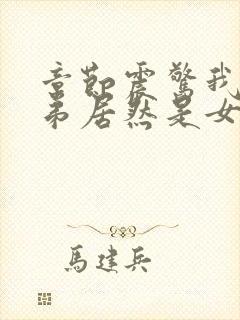 章節震驚我
弟居然是女
馬建兵